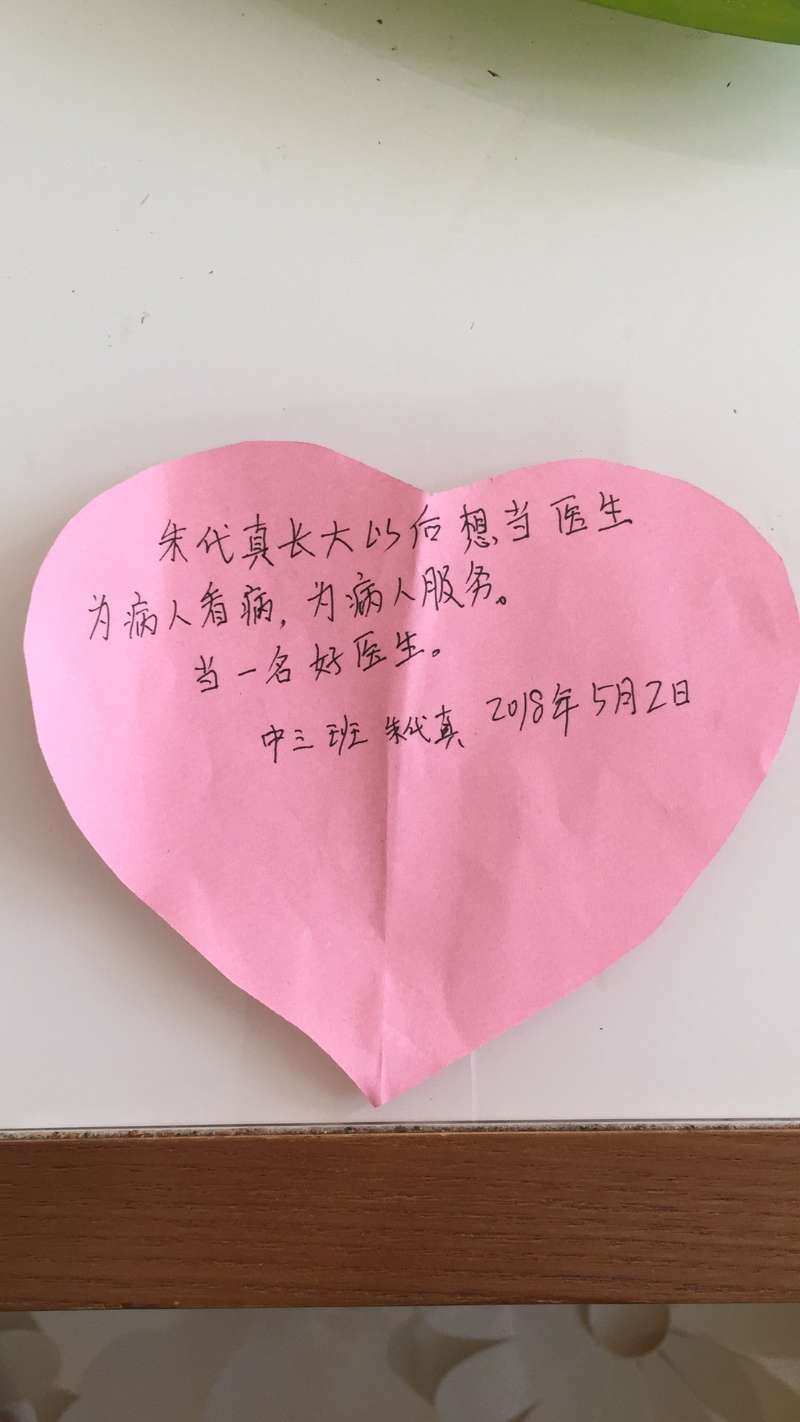 朱代真长大以后想当医生
为病人看病，为病人服务。
当一名好医生。
中三班 朱代真 2018年5月2日